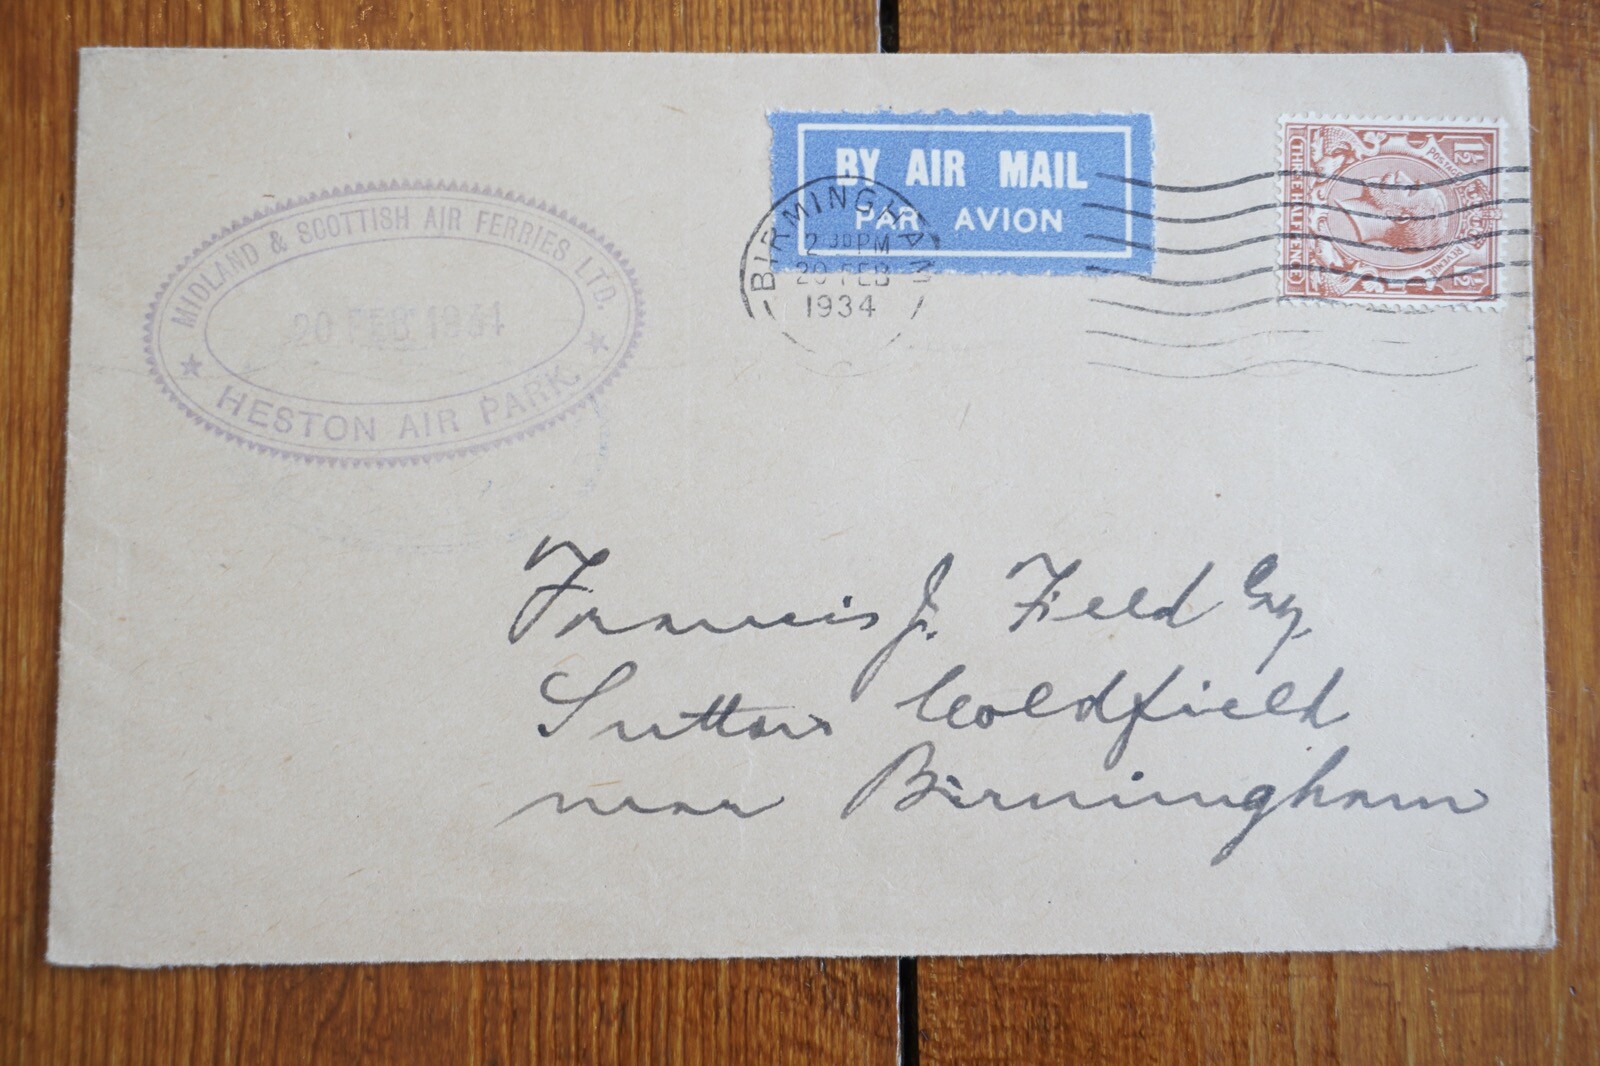 MIDLAND & SCOTTISH AIR FERRIES LTD.
20 FEB 1934
★ HESTON AIR PARK ★
BY AIR MAIL
PAR AVION
BIRMINGHAM
2 30 PM
20 FEB
1934
1½ POSTAGE REVENUE 1½
THREE HALFPENCE
Francis J. Field Esq.
Sutton Coldfield
near Birmingham